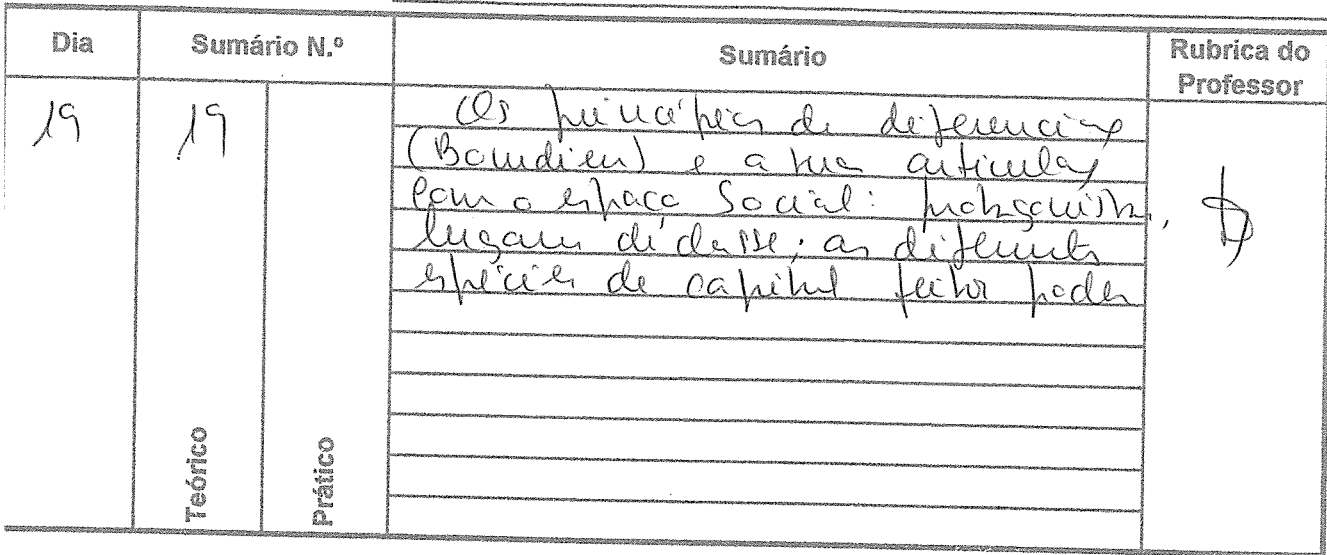 Dia
Sumário N.º
Sumário
Rubrica do
Professor
19
19
Os princípios de diferenciação
(Bourdieu) e a sua articulação
com o espaço social:
lugares de classe; as diferentes
espécies de capital feitos poder
Teórico
Prático